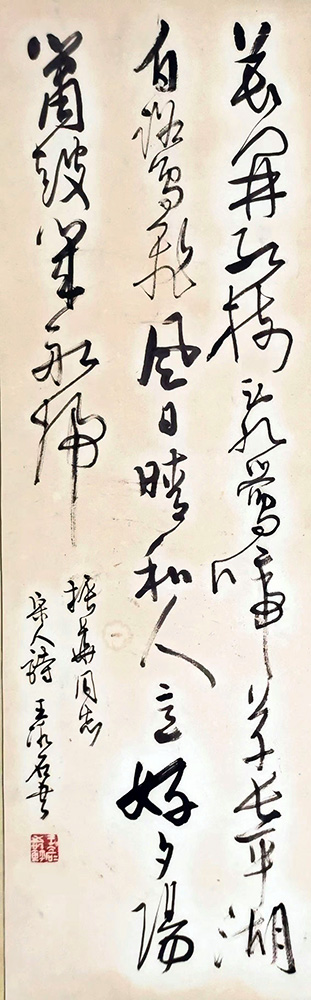 花開紅樹亂鶯啼草長平湖
白鷺飛風日晴和人意好夕陽
簫鼓幾船歸
振華同志
宋人詩 王冰石書